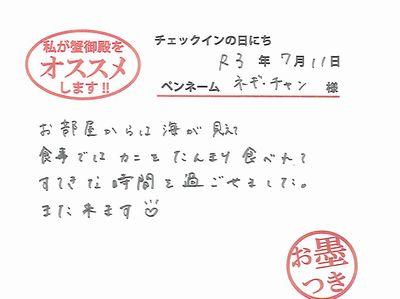 私が蟹御殿を
オススメ
します!!
チェックインの日にち
R3年7月11日
ペンネーム ネギ・チャン 様
お部屋からは海が見えて
食事ではカニをたんまり食べれて
すてきな時間を過ごせました。
また来ます
お墨
つき